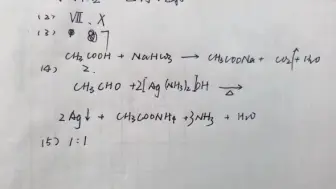 (2) VII、X
(3) 7
CH₃COOH + NaHCO₃ → CH₃COONa + CO₂↑ + H₂O
(4) 2.
CH₃CHO + 2[Ag(NH₃)₂]OH →
△
2Ag↓ + CH₃COONH₄ + 3NH₃ + H₂O
(5) 1:1